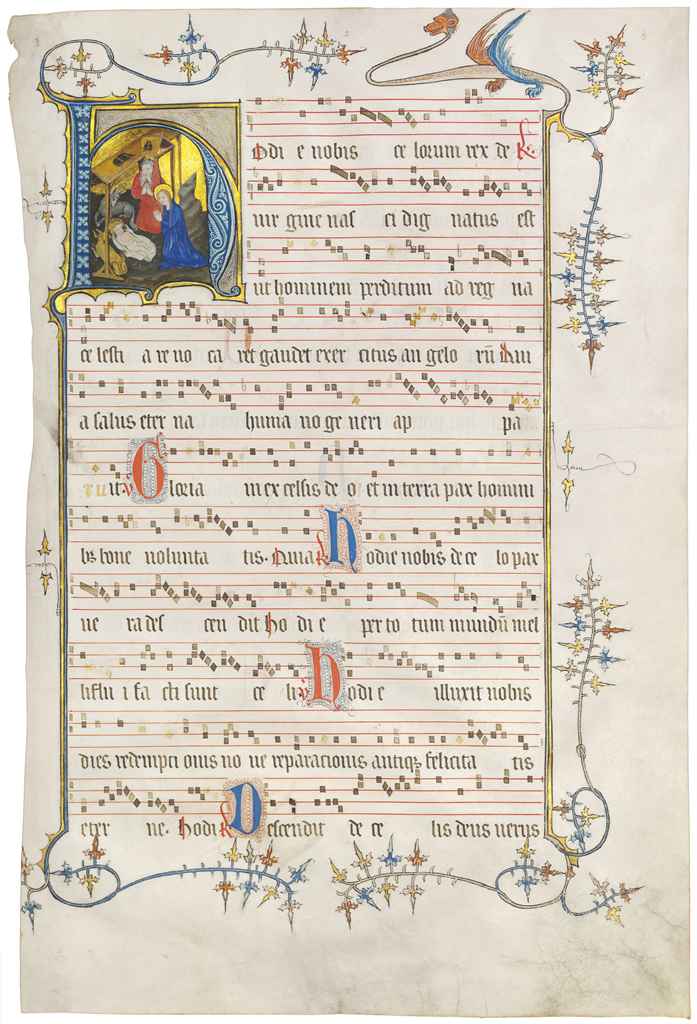 Hodi e nobis ce lorum rex de R.
vir gine nas ci dig natus est
ut hominem perditum ad reg na
ce lesti a re vo ca ret gaudet exer citus an gelo rū Qui
a salus eter na huma no ge neri ap pa
ruit V Gloria in ex celsis de o et in terra pax homini
bꝫ bone volunta tis. Quia R Hodie nobis de ce lo pax
ve ra des cen dit Ho di e per to tum mundū mel
liflu i fa cti sunt ce li V Hodi e illuxit nobis
dies redempti onis no ve reparacionis antiqꝫ felicita tis
eter ne. Hodi R Descendit de ce lis deus verus